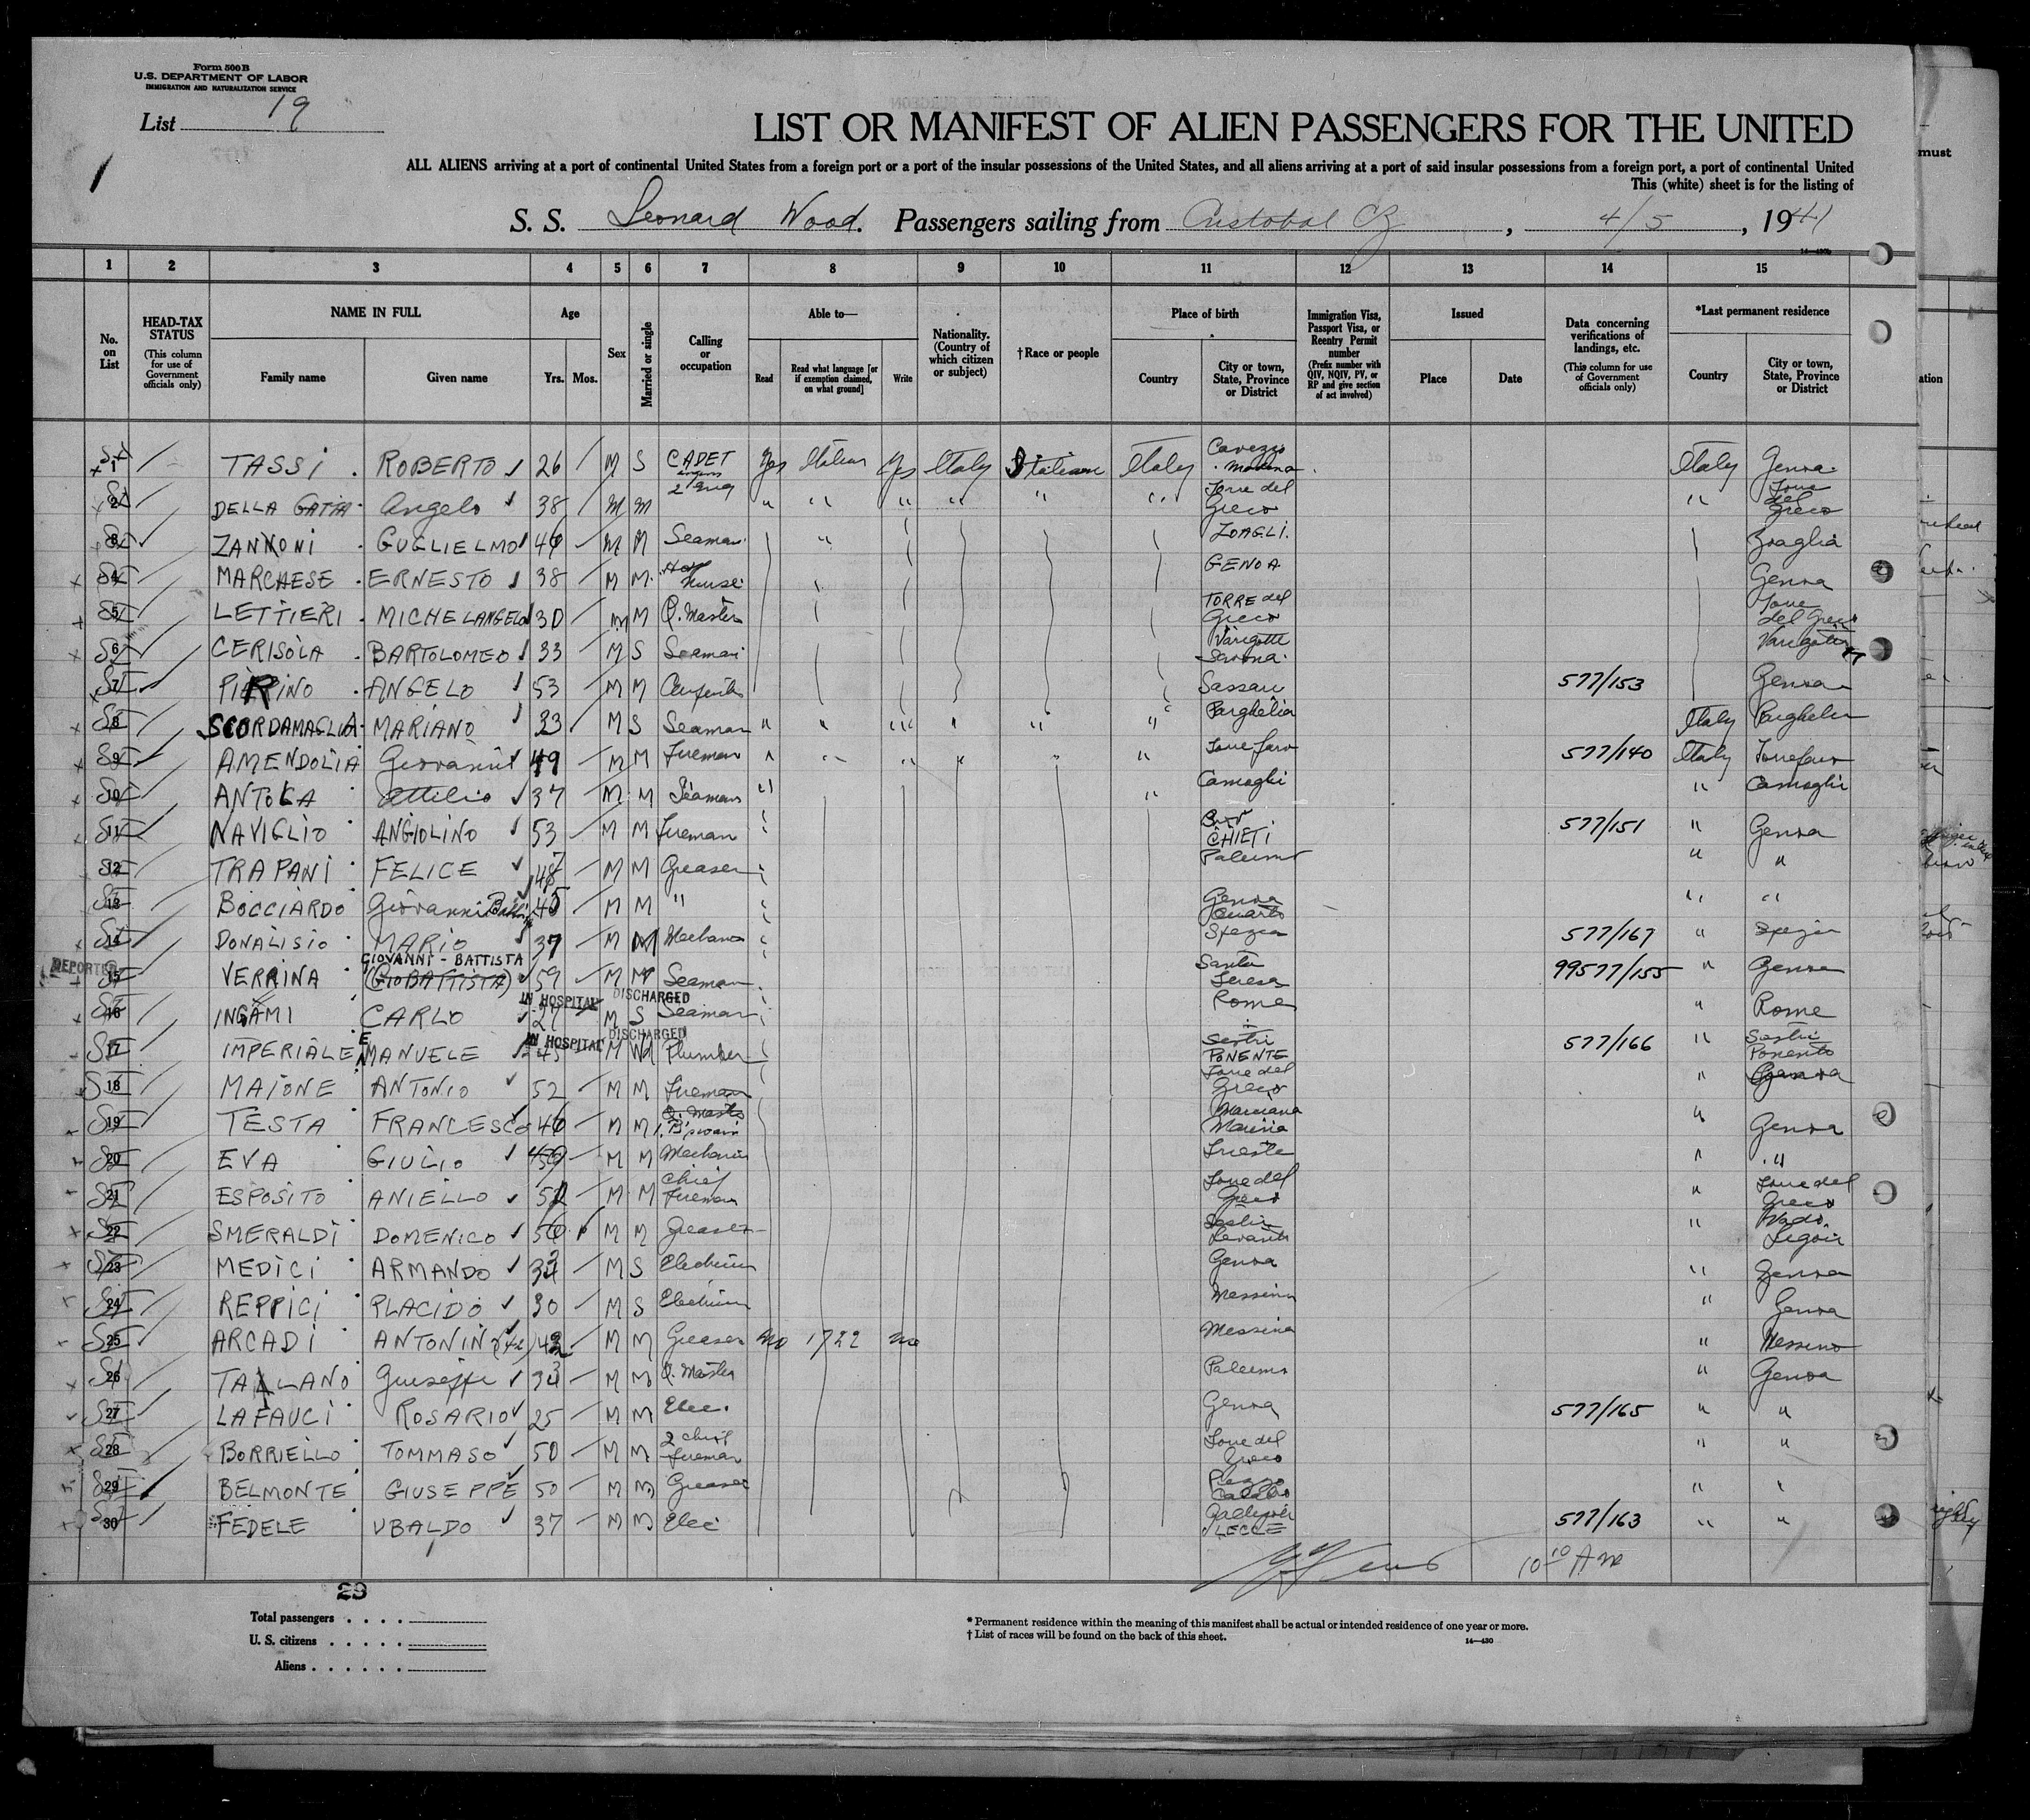 Form 500 B
U.S. DEPARTMENT OF LABOR
IMMIGRATION AND NATURALIZATION SERVICE
List 19
1
LIST OR MANIFEST OF ALIEN PASSENGERS FOR THE UNITED
ALL ALIENS arriving at a port of continental United States from a foreign port or a port of the insular possessions of the United States, and all aliens arriving at a port of said insular possessions from a foreign port, a port of continental United
This (white) sheet is for the listing of
S. S. Leonard Wood. Passengers sailing from Cristobal CZ, 4/5, 1941
14—430
1 2 3 4 5 6 7 8 9 10 11 12 13 14 15
No. on List
HEAD-TAX STATUS (This column for use of Government officials only)
NAME IN FULL Family name Given name
Age Yrs. Mos.
Sex
Married or single
Calling or occupation
Able to— Read Read what language [or if exemption claimed, on what ground] Write
Nationality. (Country of which citizen or subject)
†Race or people
Place of birth Country City or town, State, Province or District
Immigration Visa, Passport Visa, or Reentry Permit number (Prefix number with QIV, NQIV, PV, or RP and give section of act involved)
Issued Place Date
Data concerning verifications of landings, etc. (This column for use of Government officials only)
*Last permanent residence Country City or town, State, Province or District
1 TASSI ROBERTO 26 M S CADET Yes Italian Yes Italy Italian Italy Cavezzo Modena Italy Genoa
2 DELLA GATTA Angelo 38 M M 2 Eng " " " " " " Torre del Greco " Torre del Greco
3 ZANNONI GUGLIELMO 46 M M Seaman " ZOAGLI. Zoaglia
4 MARCHESE ERNESTO 38 M M Nurse GENOA Genoa
5 LETTIERI MICHELANGELO 30 M M Q. Master TORRE del Greco Torre del Greco
6 CERISOLA BARTOLOMEO 33 M S Seaman Varigotti Savona Varigotti
7 PIRINO ANGELO 53 M M Carpenter Sassari 577/153 Genoa
8 SCORDAMAGLIA MARIANO 33 M S Seaman " " " " " " Parghelia Italy Parghelia
9 AMENDOLIA Giovanni 49 M M Fireman " " " " " " Torre faro 577/140 Italy Torrefaro
10 ANTOLA Attilio 37 M M Seaman " " Camogli " Camogli
11 NAVIGLIO ANGIOLINO 53 M M Fireman CHIETI 577/151 " Genoa
12 TRAPANI FELICE 48 M M Greaser Palermo " "
13 BOCCIARDO Giovanni Batt. 45 M M " Genoa Quarto " "
14 DONALISIO MARIO 37 M M Mechanic Spezia 577/167 " Spezia
DEPORTED
15 VERRINA GIOVANNI - BATTISTA (GIOBATTISTA) 59 M M Seaman Santa Teresa 99577/155 " Genoa
IN HOSPITAL DISCHARGED
16 INGAMI CARLO 27 M S Seaman Rome " Rome
IN HOSPITAL DISCHARGED
17 IMPERIALE EMANUELE 45 M Wd Plumber Sestri PONENTE 577/166 " Sestri Ponente
18 MAIONE ANTONIO 52 M M Fireman Torre del Greco " Genova
19 TESTA FRANCESCO 46 M M Q. Master 1. B'swain Marciana Marina " Genoa
20 EVA GIULIO M M Mechanic Trieste " "
21 ESPOSITO ANIELLO 52 M M Chief Fireman Torre del Greco " Torre del Greco
22 SMERALDI DOMENICO 56 M M Greaser Sestri Levante " Vado Ligure
23 MEDICI ARMANDO M S Electrician Genoa " Genoa
24 REPPICI PLACIDO 30 M S Electrician Messina " Genoa
25 ARCADI ANTONINO 42 M M Greaser No 1722 no Messina " Messina
26 TALLANO Giuseppe 33 M M Q. Master Palermo " Genoa
27 LAFAUCI ROSARIO 25 M M Elec. Genoa 577/165 " "
28 BORRIELLO TOMMASO 50 M M 2 chief Fireman Torre del Greco " "
29 BELMONTE GIUSEPPE 50 M M Greaser Calabro " "
30 FEDELE UBALDO 37 M M Elec Gallipoli LECCE 577/163 " "
10 10 AM
29
Total passengers
U. S. citizens
Aliens
* Permanent residence within the meaning of this manifest shall be actual or intended residence of one year or more.
† List of races will be found on the back of this sheet.
14—430
must
ation